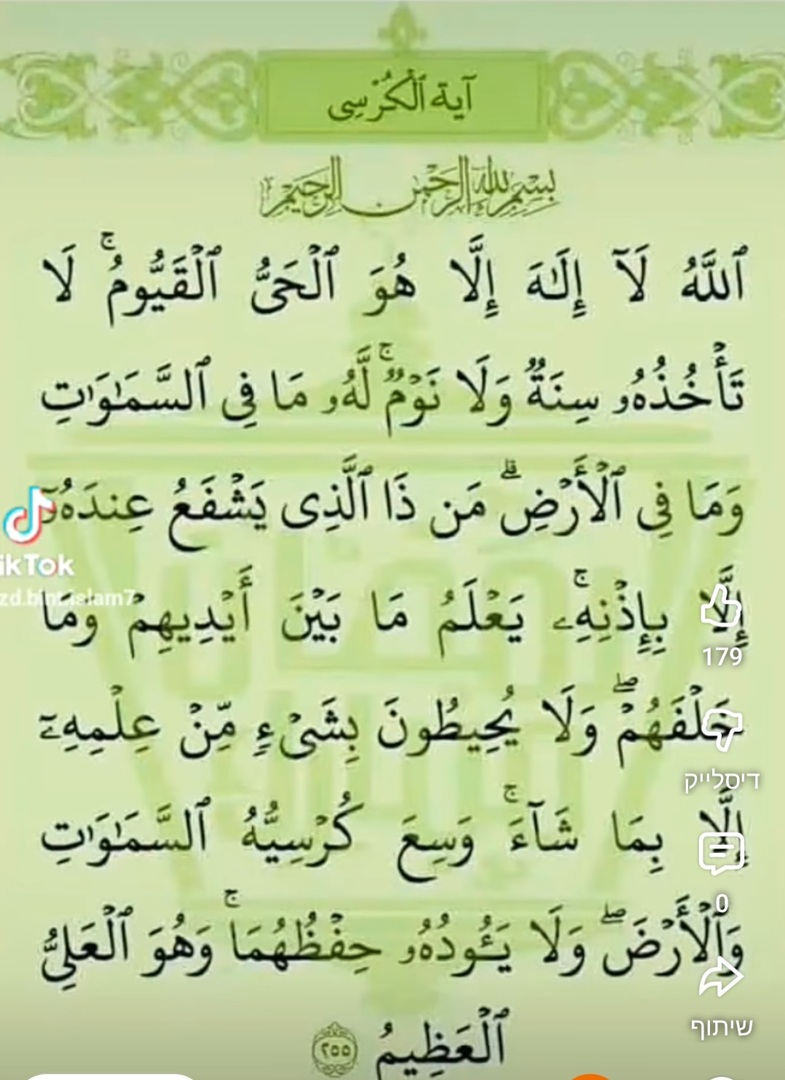 آية ٱلْكُرْسِى
بِسْمِ ٱللَّهِ ٱلرَّحْمَٰنِ ٱلرَّحِيمِ
ٱللَّهُ لَآ إِلَٰهَ إِلَّا هُوَ ٱلْحَىُّ ٱلْقَيُّومُ ۚ لَا
تَأْخُذُهُۥ سِنَةٌ وَلَا نَوْمٌ ۚ لَّهُۥ مَا فِى ٱلسَّمَٰوَٰتِ
وَمَا فِى ٱلْأَرْضِ ۗ مَن ذَا ٱلَّذِى يَشْفَعُ عِندَهُۥٓ
إِلَّا بِإِذْنِهِۦ ۚ يَعْلَمُ مَا بَيْنَ أَيْدِيهِمْ وَمَا
خَلْفَهُمْ ۖ وَلَا يُحِيطُونَ بِشَىْءٍ مِّنْ عِلْمِهِۦٓ
إِلَّا بِمَا شَآءَ ۚ وَسِعَ كُرْسِيُّهُ ٱلسَّمَٰوَٰتِ
وَٱلْأَرْضَ ۖ وَلَا يَـُٔودُهُۥ حِفْظُهُمَا ۚ وَهُوَ ٱلْعَلِىُّ
ٱلْعَظِيمُ ٢٥٥
ikTok
179
דיסלייק
0
שיתוף